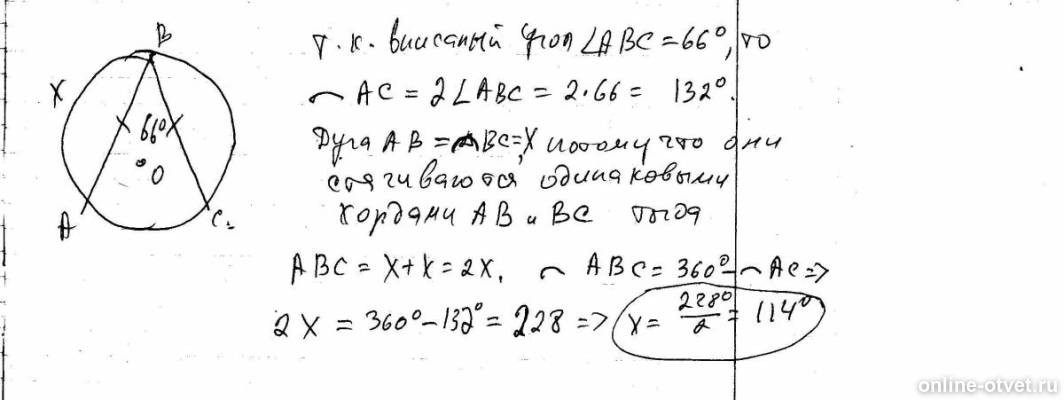 B
X
66°
O
A
C
т.к. вписаный угол ∠ABC = 66°, то
⌢ AC = 2∠ABC = 2·66 = 132°.
Дуга AB = ⌢BC = X потому что они
стягиваются одинаковыми
хордами AB и BC тогда
ABC = X + X = 2X, ⌢ ABC = 360° - ⌢ AC =>
2X = 360° - 132° = 228 => X = 228°/2 = 114°
online-otvet.ru